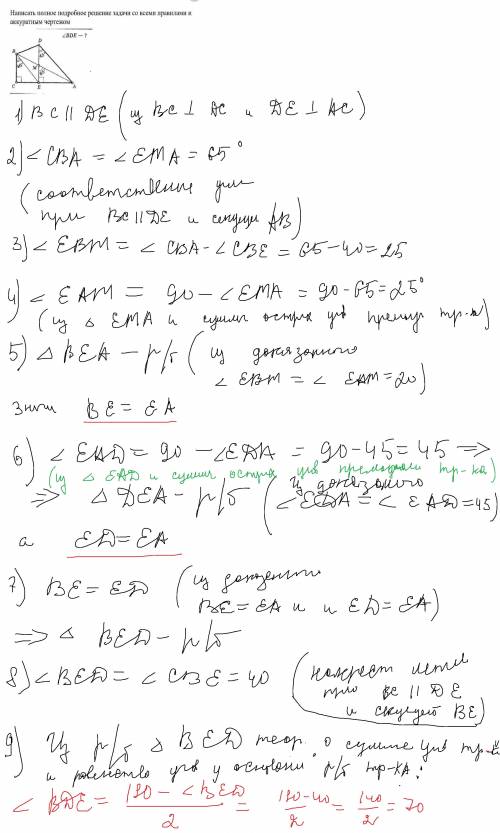 Написать полное подробное решение задачи со всеми правилами и
аккуратным чертежом
∠BDE – ?
D
B
M
C
E
A
1) BC || DE (из BC ⊥ AC и DE ⊥ AC)
2) ∠CBA = ∠EMA = 65°
(соответственные углы
при BC || DE и секущей AB)
3) ∠EBM = ∠CBA - ∠CBE = 65 - 40 = 25
4) ∠EAM = 90 - ∠EMA = 90 - 65 = 25°
(из △ EMA и сумма острых углов прямоуг тр-ка)
5) △ BEA - р/б (из доказанного
∠EBM = ∠EAM = 20)
Значит BE = EA
6) ∠EAD = 90 - ∠EDA = 90 - 45 = 45 =>
(из △ EAD и сумма острых углов прямоугол тр-ка)
=> △ DEA - р/б (из доказанного
∠EDA = ∠EAD = 45)
а ED = EA
7) BE = ED (из доказанного
BE = EA и и ED = EA)
=> △ BED - р/б
8) ∠BED = ∠CBE = 40 (накрест лежащие
при BC || DE
и секущей BE)
9) Из р/б △ BED теор. о сумме углов тр-ка
и равенство углов у основания р/б тр-ка:
∠BDE = (180 - ∠BED)/2 = (180-40)/2 = 140/2 = 70